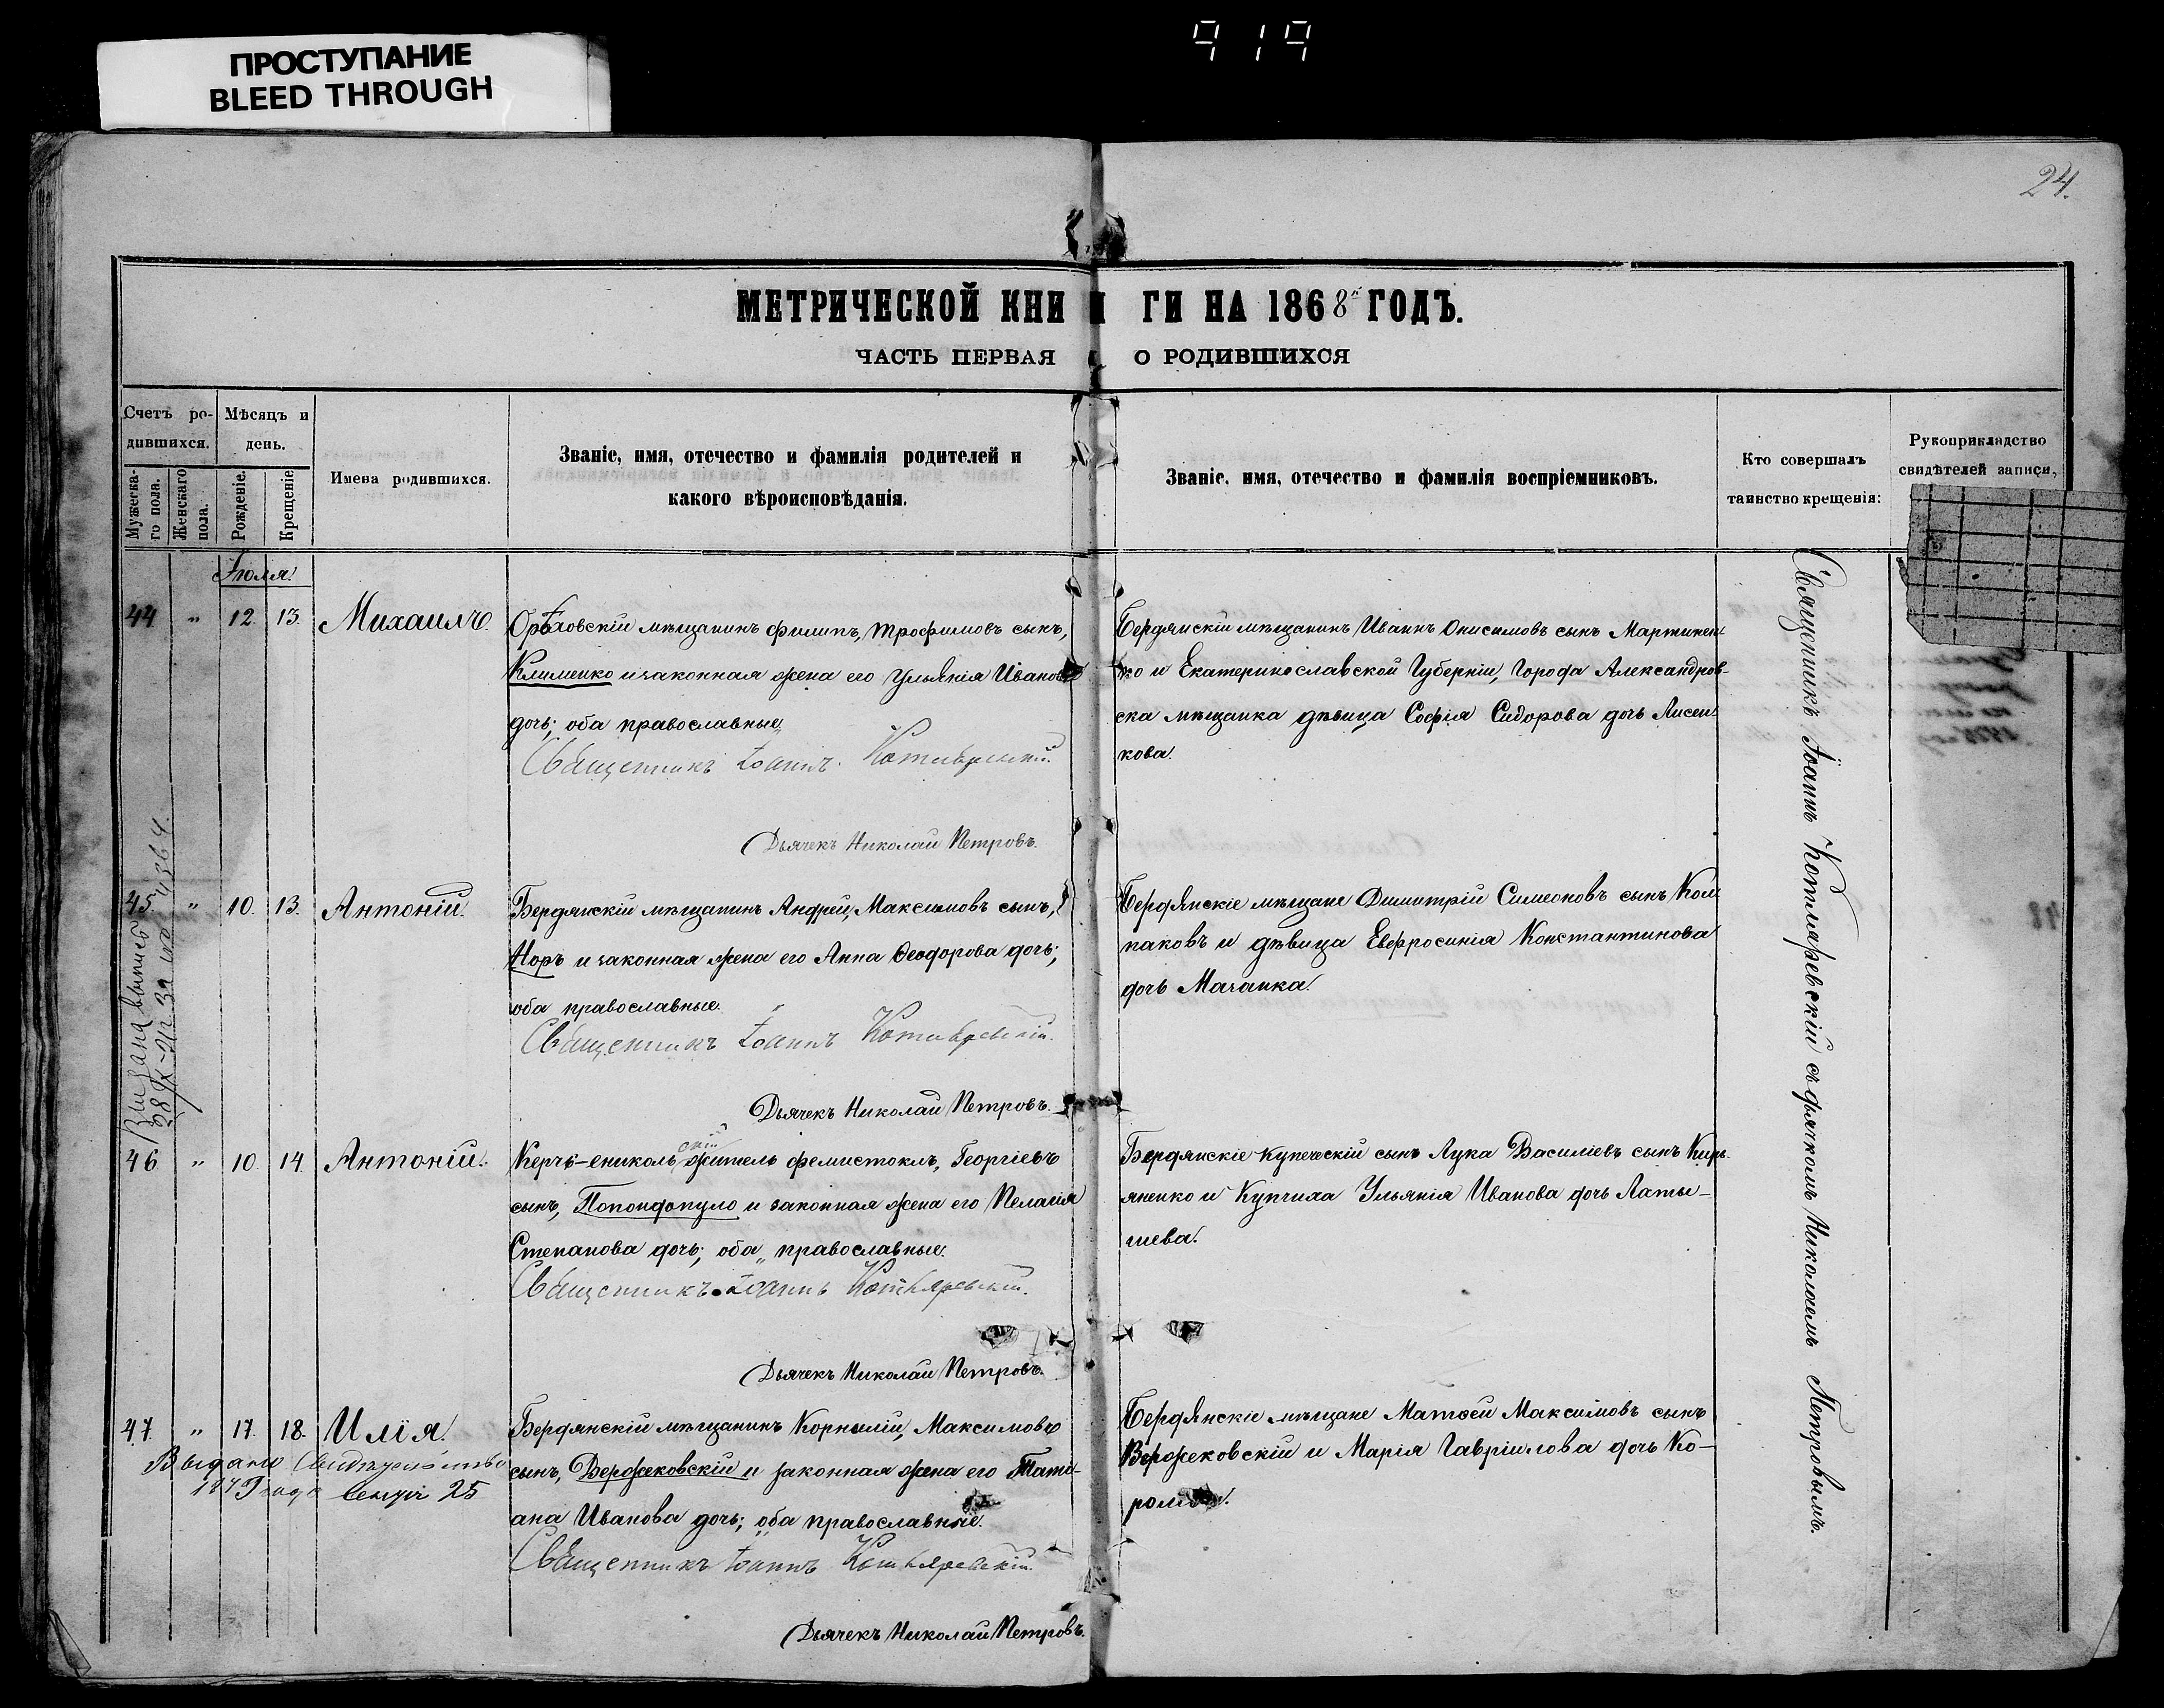 ПРОСТУПАНИЕ
BLEED THROUGH
919
24.
МЕТРИЧЕСКОЙ КНИ ГИ НА 1868 ГОДЪ.
ЧАСТЬ ПЕРВАЯ О РОДИВШИХСЯ
Счетъ ро-
дившихся.
Мужеска-
го пола.
Женскаго
пола.
Мѣсяцъ и
день.
Рожденіе.
Крещеніе
Имена родившихся.
Званіе, имя, отечество и фамилія родителей и
какого вѣроисповѣданія.
Званіе, имя, отечество и фамилія воспріемниковъ.
Кто совершалъ
таинство крещенія:
Рукоприкладство
свидѣтелей записи,
Іюля.
44 " 12. 13. Михаилъ.
Орѣховскій мѣщанинъ Филипъ, Трофимовъ сынъ,
Клименко и законная жена его Ульянія Иванова
дочь; оба православные
Священникъ Іоаннъ Котляревскій.
Дьячекъ Николай Петровъ.
Бердянскій мѣщанинъ Иванъ Онисимовъ сынъ Мартинен-
ко и Екатеринославской Губерніи, Города Александров-
ска мѣщанка дѣвица Софія Сидорова дочь Лисен-
кова.
45. " 10. 13. Антоній.
Бердянскій мѣщанинъ Андрей, Максимовъ сынъ,
Норъ и законная жена его Анна Ѳеодорова дочь;
оба православные.
Священникъ Іоаннъ Котляревскій.
Дьячекъ Николай Петровъ.
Бердянскіе мѣщане Димитрій Симеоновъ сынъ Кол-
паковъ и дѣвица Евфросинія Константинова
дочь Мачанка.
Выдана выпись
46 " 10. 14. Антоній.
Керчь-ениколь
скій
житель Фемистоклъ, Георгіевъ
сынъ, Попондопуло и законная жена его Пелагія
Степанова дочь; оба православные.
Священникъ Іоаннъ Котляревскій.
Дьячекъ Николай Петровъ.
Бердянскіе купеческій сынъ Лука Василіевъ сынъ Кирь-
яненко и Купчиха Ульянія Иванова дочь Латы-
шева.
47. " 17. 18. Илія.
Выдано Свидѣтельство
года 25
Бердянскій мѣщанинъ Корнилій, Максимовъ
сынъ, Вержековскій и законная жена его Тати-
ана Иванова дочь; оба православные.
Священникъ Іоаннъ Котляревскій.
Дьячекъ Николай Петровъ.
Бердянскіе мѣщане Матѳей Максимовъ сынъ
Вержековскій и Марія Гавріилова дочь Ко-
Священникъ Іоаннъ Котляревскій съ дьячкомъ Николаемъ Петровымъ.